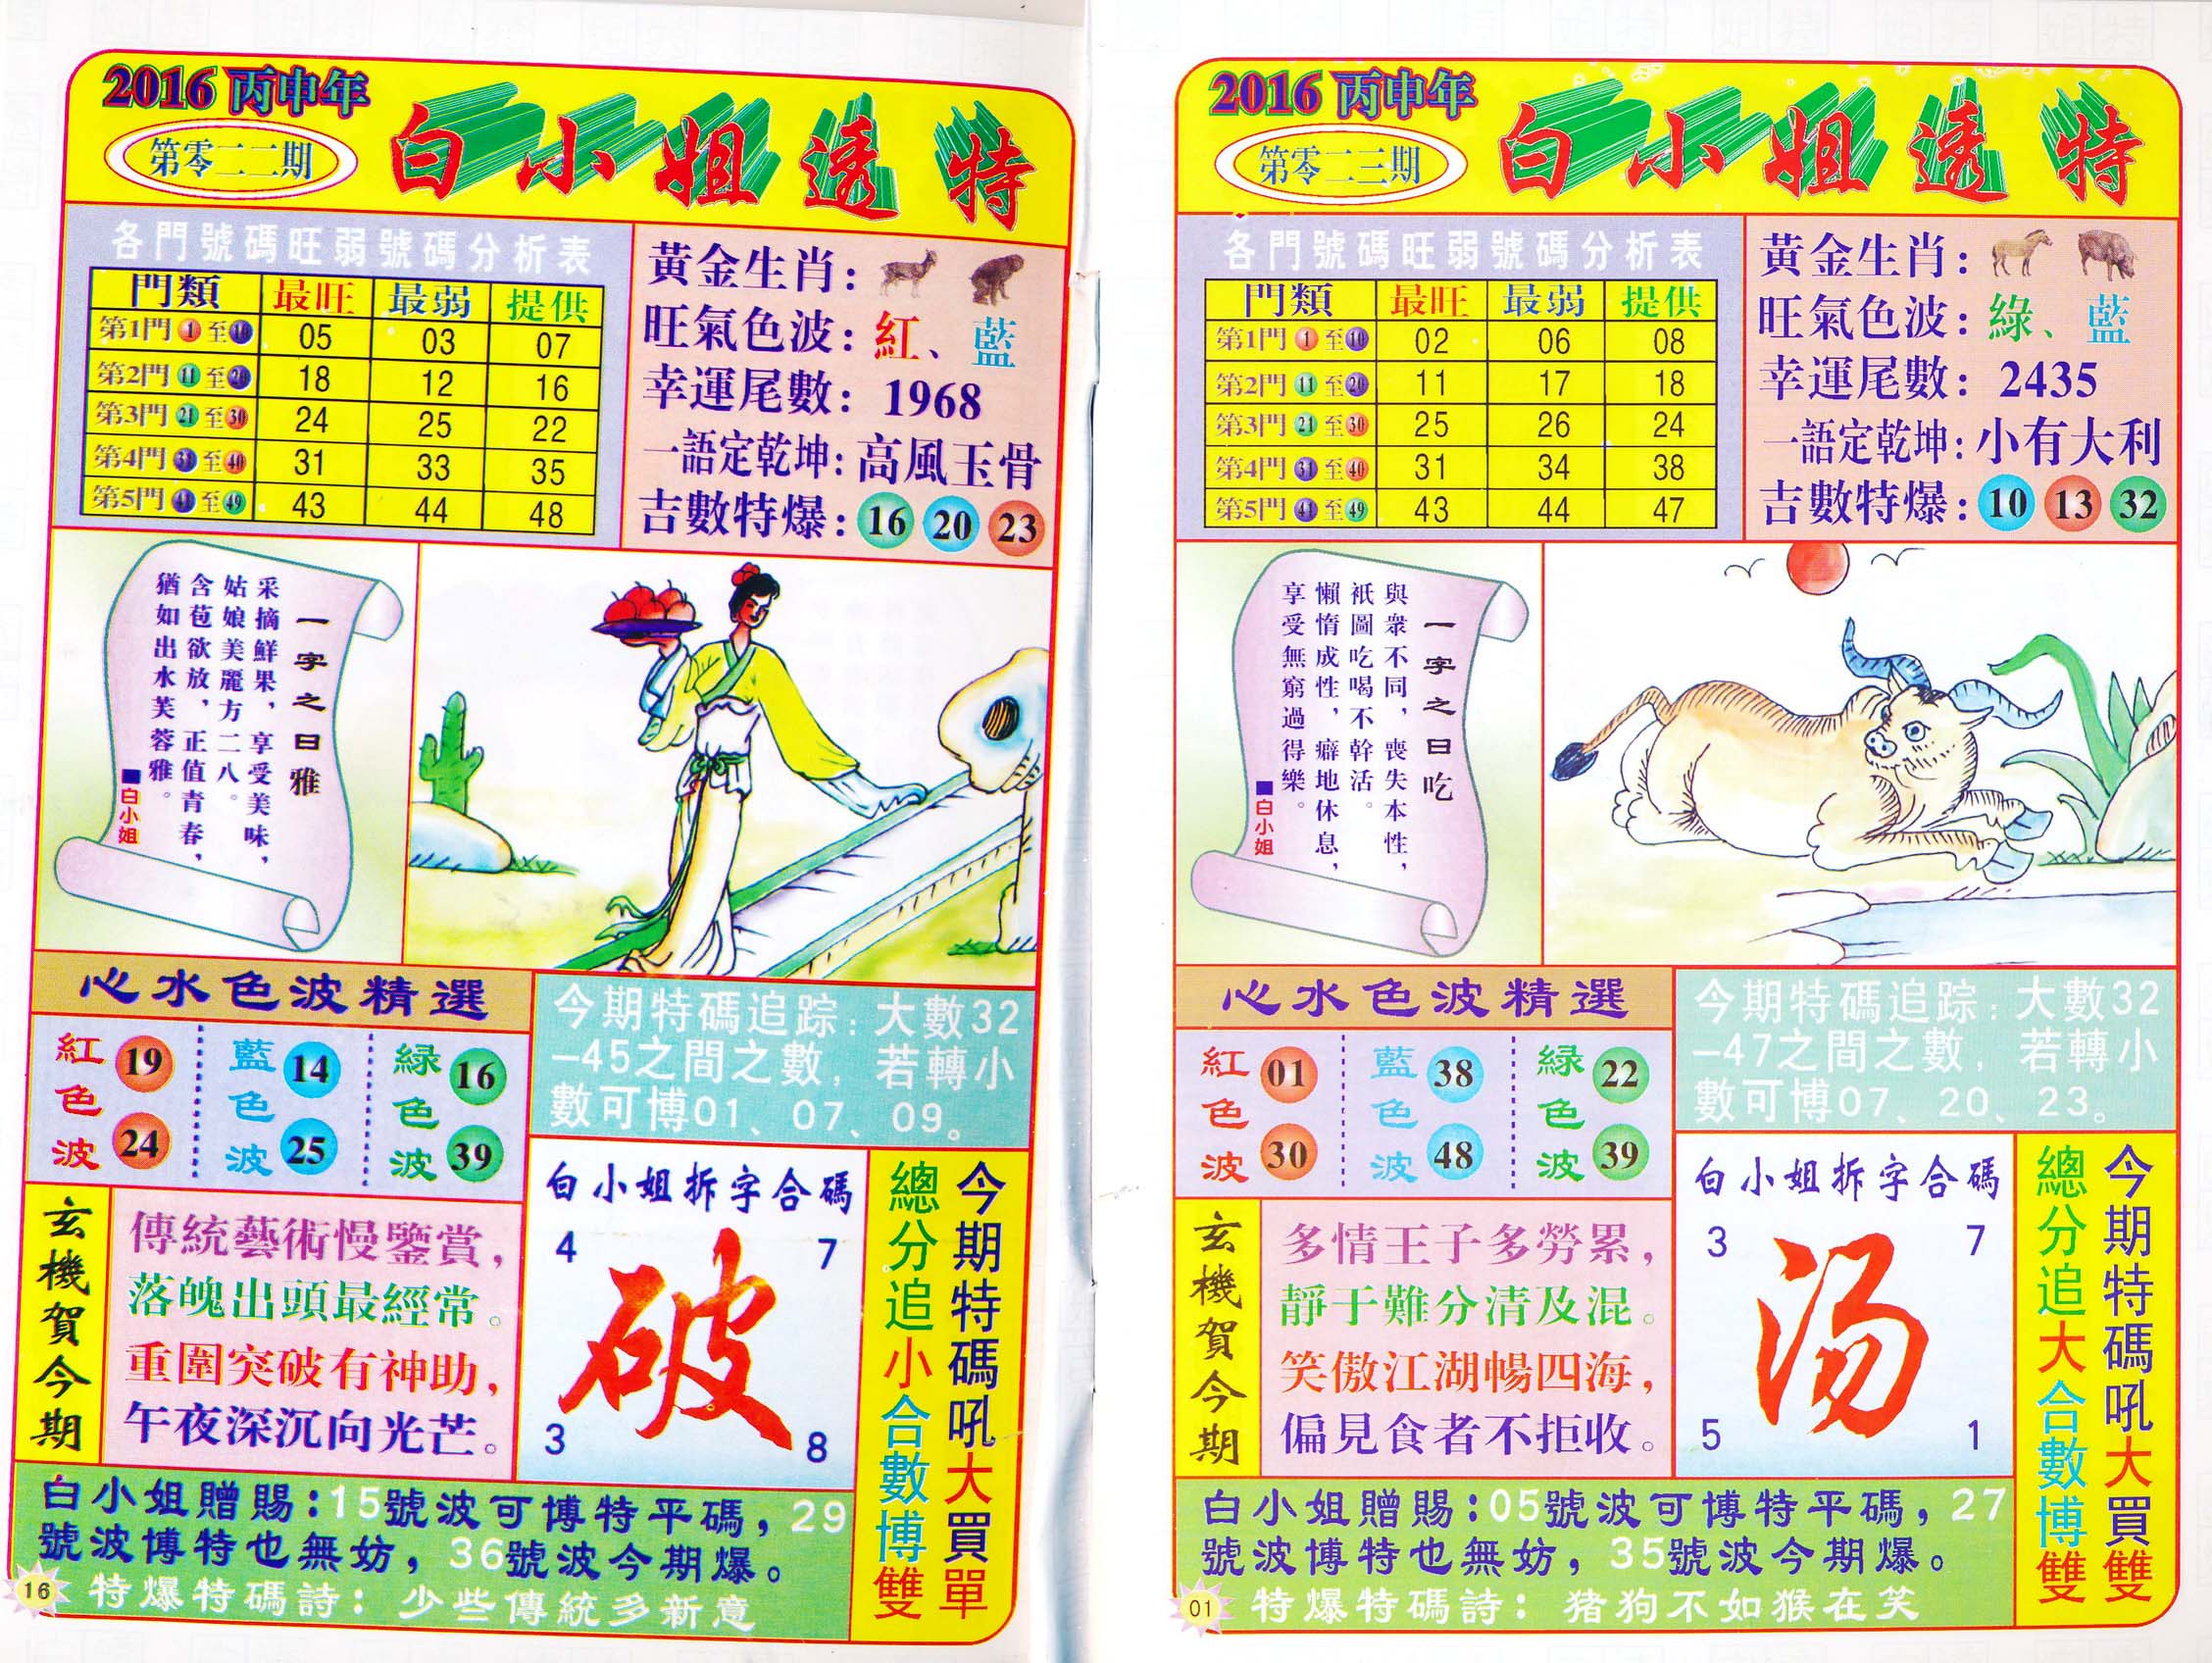 2016 丙申年
第零二二期
白小姐透特
各門號碼旺弱號碼分析表
門類 最旺 最弱 提供
第1門 1 至 10 05 03 07
第2門 11 至 20 18 12 16
第3門 21 至 30 24 25 22
第4門 31 至 40 31 33 35
第5門 41 至 49 43 44 48
黃金生肖：
旺氣色波：紅、藍
幸運尾數：1968
一語定乾坤：高風玉骨
吉數特爆：16 20 23
一字之曰雅
采摘鮮果，享受美味，
姑娘美麗方二八。
含苞欲放，正值青春，
猶如出水芙蓉雅。
■白小姐
心水色波精選
紅色波 19 24
藍色波 14 25
緑色波 16 39
今期特碼追踪：大數32
-45之間之數，若轉小
數可博01、07、09。
玄機賀今期
傳統藝術慢鑒賞，
落魄出頭最經常。
重圍突破有神助，
午夜深沉向光芒。
白小姐拆字合碼
4 7
破
3 8
今期特碼吼大買單
總分追小合數博雙
白小姐贈賜：15號波可博特平碼，29
號波博特也無妨，36號波今期爆。
16 特爆特碼詩：少些傳統多新意
2016 丙申年
第零二三期
白小姐透特
各門號碼旺弱號碼分析表
門類 最旺 最弱 提供
第1門 1 至 10 02 06 08
第2門 11 至 20 11 17 18
第3門 21 至 30 25 26 24
第4門 31 至 40 31 34 38
第5門 41 至 49 43 44 47
黃金生肖：
旺氣色波：綠、藍
幸運尾數：2435
一語定乾坤：小有大利
吉數特爆：10 13 32
一字之曰吃
與衆不同，喪失本性，
衹圖吃喝不幹活。
懶惰成性，癖地休息，
享受無窮過得樂。
■白小姐
心水色波精選
紅色波 01 30
藍色波 38 48
緑色波 22 39
今期特碼追踪：大數32
-47之間之數，若轉小
數可博07、20、23。
玄機賀今期
多情王子多勞累，
靜于難分清及混。
笑傲江湖暢四海，
偏見食者不拒收。
白小姐拆字合碼
3 7
汤
5 1
今期特碼吼大買雙
總分追大合數博雙
白小姐贈賜：05號波可博特平碼，27
號波博特也無妨，35號波今期爆。
01 特爆特碼詩：猪狗不如猴在笑